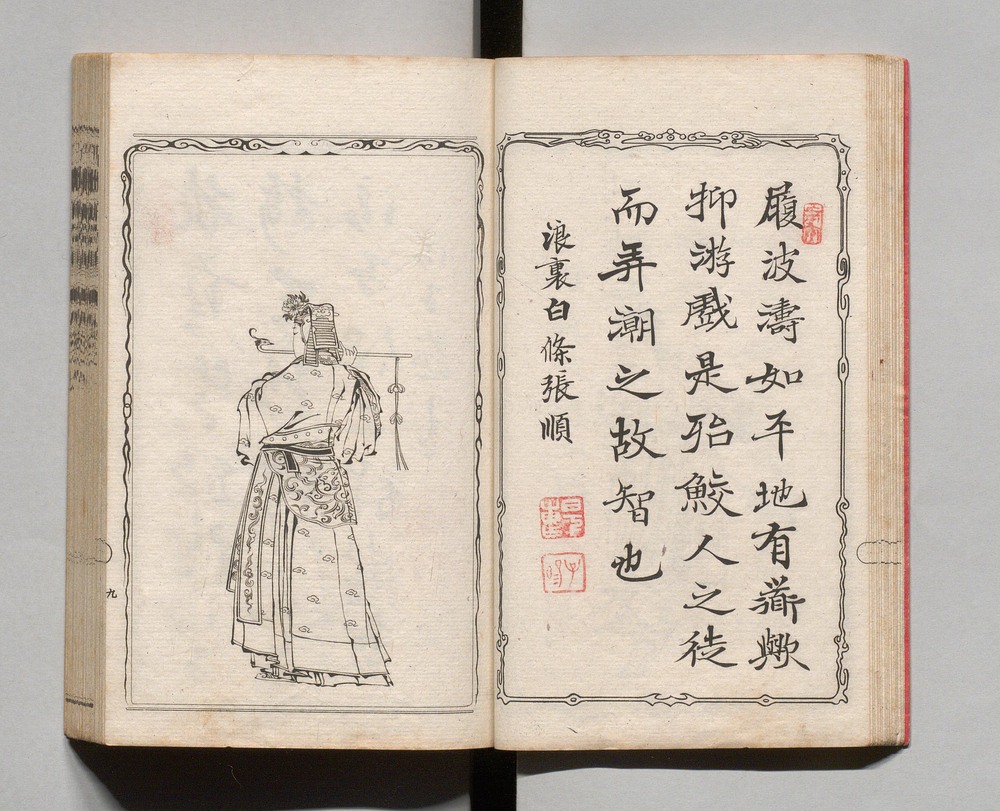 履波濤如平地有道歟
抑游戲是殆鮫人之徒
而弄潮之故智也
浪裏白條張順
九